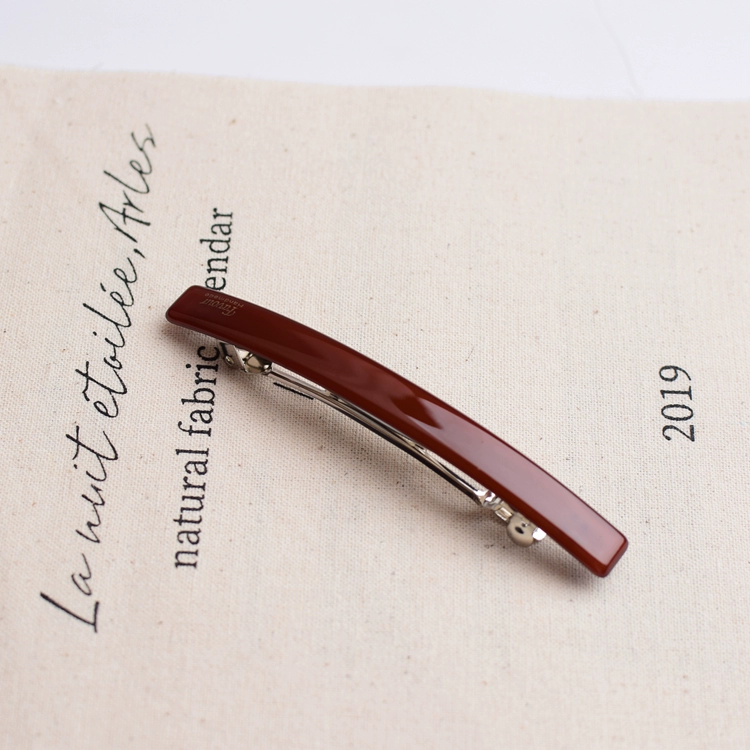 La nuit étoilée, Arles
natural fabric endar
2019